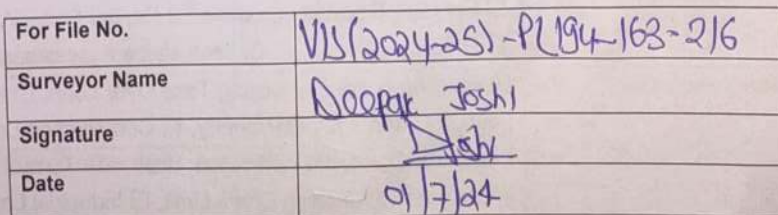 For File No. VIS(2024-25)-PL194-163-216
Surveyor Name Deepak Joshi
Signature DJoshi
Date 01/7/24